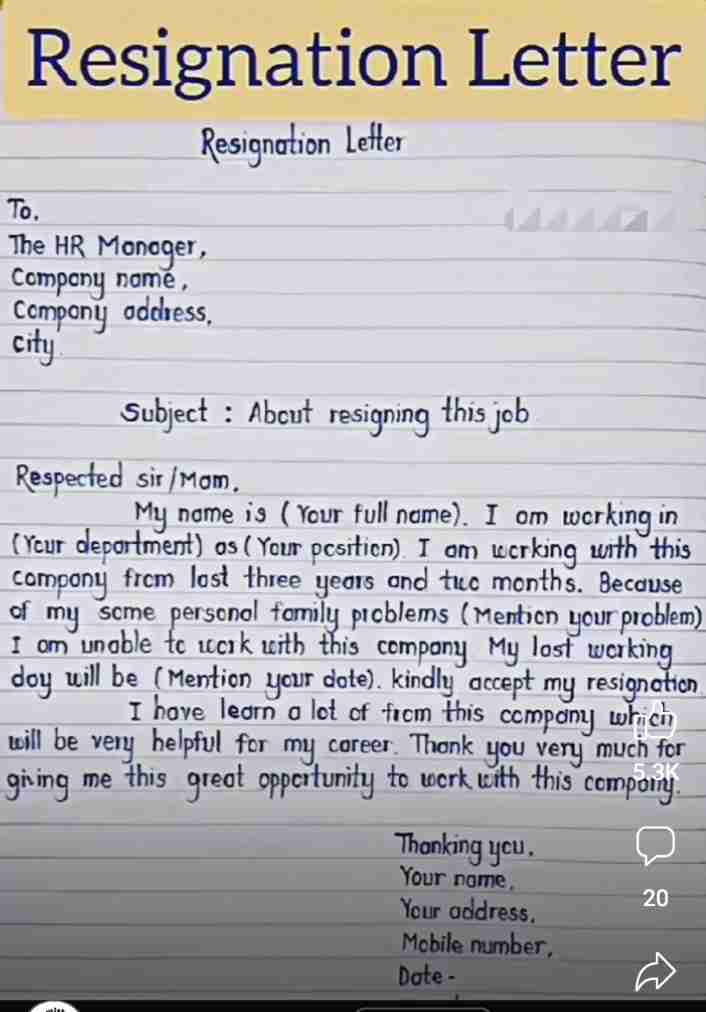 Resignation Letter
Resignation Letter
To,
The HR Manager,
Company name,
Company address,
City.
Subject : About resigning this job
Respected sir/Mam,
My name is (Your full name). I am working in
(Your department) as (Your position). I am working with this
company from last three years and two months. Because
of my some personal family problems (Mention your problem)
I am unable to work with this company My last working
day will be (Mention your date). kindly accept my resignation
I have learn a lot of from this company which
will be very helpful for my career. Thank you very much for
5.3K
giving me this great opportunity to work with this company.
Thanking you,
Your name,
20
Your address,
Mobile number,
Date -